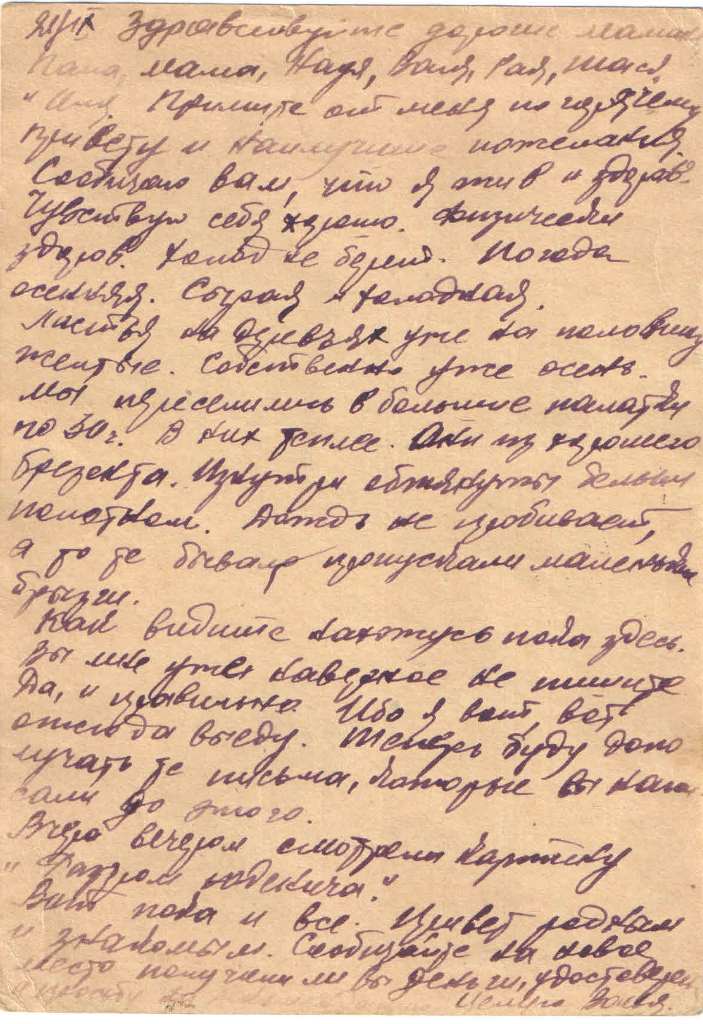 Здравствуйте дорогие мамаш
Папа, мама, Надя, Валя, Рая, Тася,
Примите от меня по горячему
привету и наилучшие пожелания.
Сообщаю вам, что я жив и здоров.
Чувствую себя хорошо. Физически
здоров. Холод не берет. Погода
осенняя. Сырая и холодная.
Листья на деревьях уже на половину
желтые. Собственно уже осень.
Мы переселились в большие палатки
по 30 ч. В них теплее. Они из хорошего
брезента. Изнутри обтянуты белым
полотном. Дождь не пробивает,
а то те бывало пропускали маленькие
брызги.
Как видите нахожусь пока здесь.
Вы мне уже наверное не пишите
Да, и правильно. Ибо я вот, вот
отсюда выеду. Теперь буду допо
лучать те письма, которые вы напи
сали до этого.
Вчера вечером смотрели картину
"Разгром Юденича."
Вот пока и все. Привет родным
и знакомым. Сообщайте на новое
место получили ли вы деньги, удостоверен
Целую Ваня.